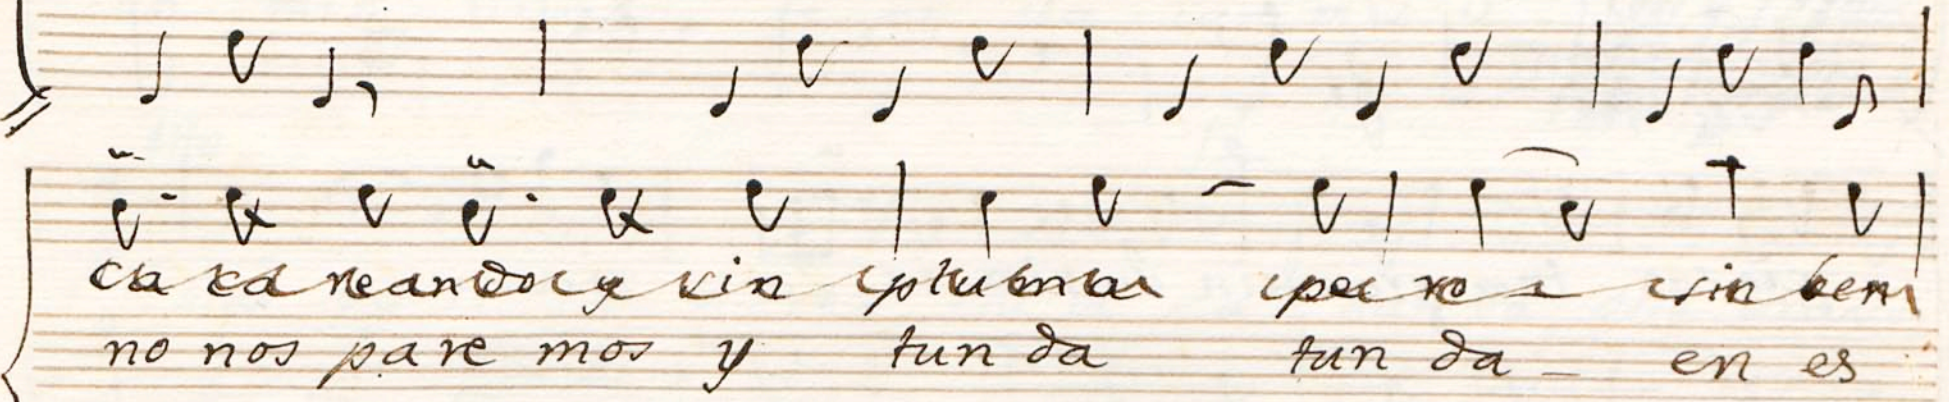 ca ca reando y sin pluma pe ro - sin ten
no nos pa re mos y tun da tun da - en es